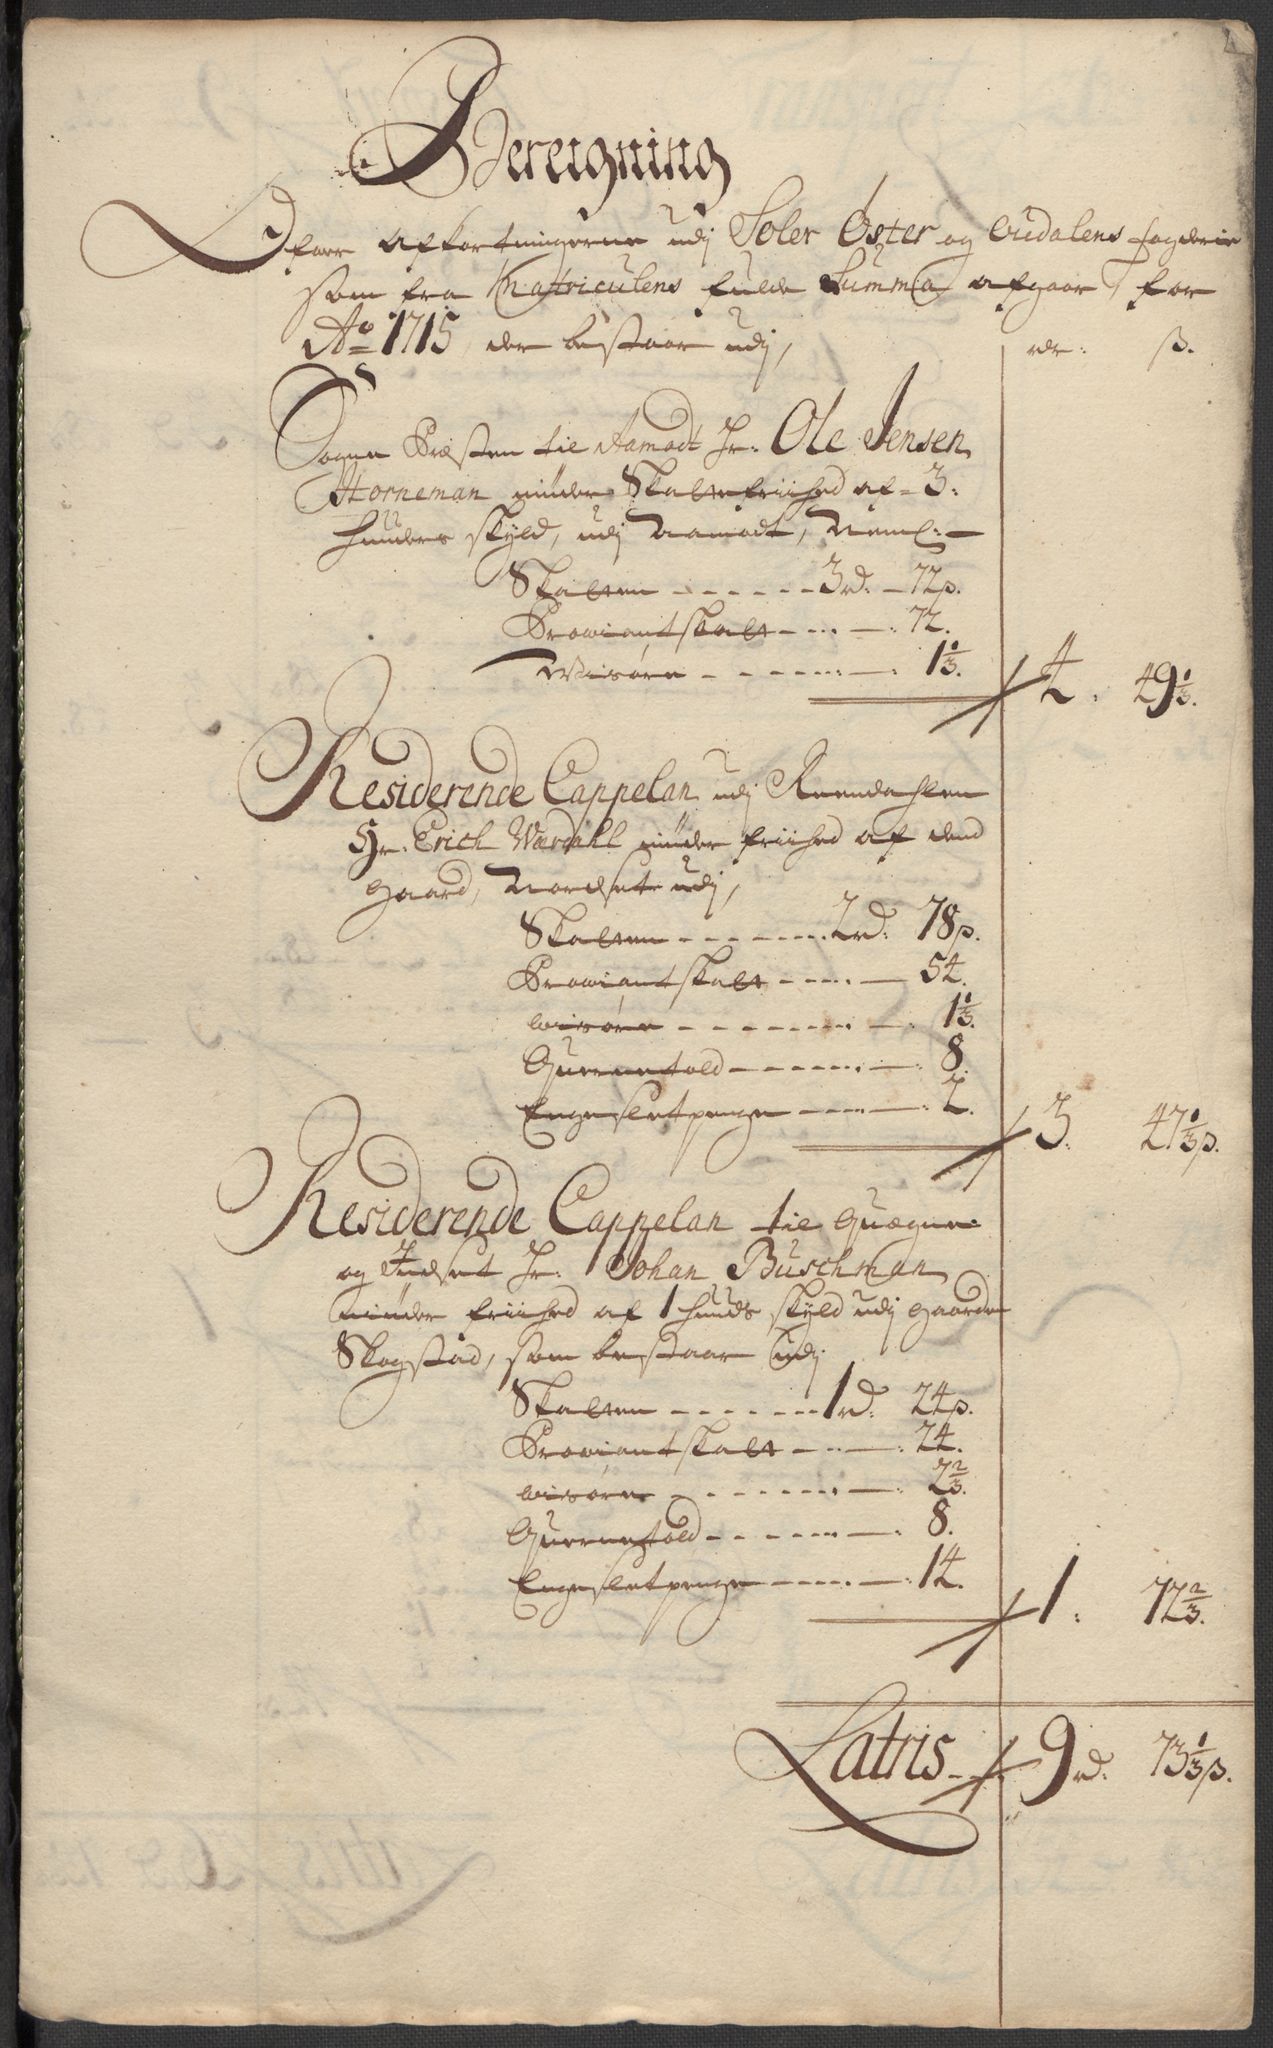 Bereigning
Ofver afkortningerne udj Soler Øster og Oudalens fogderie
som fra Matriculens fulde Summa afgaar, for
Ao 1715 der bestaar udj,
rdr: ß.
Sogne Præsten til Aamodt Hr: Ole Jensen
Horneman nüder Skattefriihed af 3:
huuders skyld, udj Aamodt, Neml: –
Skatten - - - - - - 3 rd: – 72 ß.
Proviantskatt - - - - – : 72.
Visøren - - - - - - - – : 1 1/3.
4. 49 1/3.
Residerende Cappelan udj Reendahlen
Hr. Erich Wærdahl nüder friihed af dend
gaard, Nordset udj,
Skatten - - - - - - 2 rd: 78 ß.
Proviantskatt - - - - – 54.
wisøren - - - - - - - – : 1 1/3.
Quernetold - - - - - - – : 8
Engesletpenge - - - - – : 2.
3. 47 1/3 ß.
Residerende Cappelan til Quægne:
og Indset Hr: Johan Buschman
nüder friihed af 1 huuds skyld udj gaarden
Skogstad, som bestaar udj
Skatten - - - - - - 1 rd: 24 ß.
Proviantskatt - - - – : 24.
wisøren - - - - - - - – : 2 2/3.
Quernetold - - - - - – : 8.
Engesletpenge - - - - – : 14.
1: 72 2/3.
Latris - - 9 rd: 73 1/3 ß.